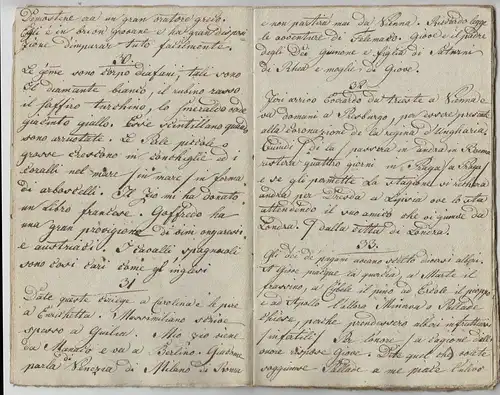 Demostene era un gran oratore greco.
Egli è in buon giovane e ha gran dispo
zione d'imparare tutto facilmente.
30.
Le gème sono corpo diafani, tali sono
il diamante bianco, il rubino rosso
il saffiro turchino, lo smeraldo verde
giacinto giallo. Esse scintillano quando
sono arruotate. Le Perle piccole o
grosse crescono in conchiglie ed i
coralli nel mare (in mare) in forma
di arboscelli. Il Zio mi ha donato
un libro francese. Goffredo ha
una gran provigione di vini ongaresi
e austriaci. I cavalli spagnuoli
sono così cari come gl'inglesi
31
Date queste ciriege a Carolina e le pere
a Enrichetta. Massimiliano scrive
spesso a Guilien. Mio zio viene
da Manaco e va a Berlino.
parla di Venezia di Milano di Roma
e non partirà mai da Vienna. Ricardo legge
le avventure di Telemaco. Giove è il padre
degli Dei Giunone è figlia di Saturni
di Rhea e moglie di Giove.
32
Jeri arrivò Edoardo da Trieste a Vienna e
va domani a Presburgo, per essere presente
alla Coronazione de la regina d'Ungheria.
Quindi di la passera in andra in Boemia
resterà quattro giorni in Praga (a Praga)
e se gli permette la stagione si rechera
andra per Dresda a Lipsia ove lo sta
attendendo il suo amico che vi giunse da
Londra. (dalla città di Londra.
33.
Gli Dei di pagani avano scelto diversi alberi.
il frassino, a Cibele il pino ad Ercole il pioppo
e ad Apollo l'alloro Minerva Pallade
chiese, perche prendessero alberi infruttuosi
(infertili) Per l'onore (a cagione dell'
onore rispose Giove. Dite quel che volete
soggiunse Pallade a me piace l'ulivo